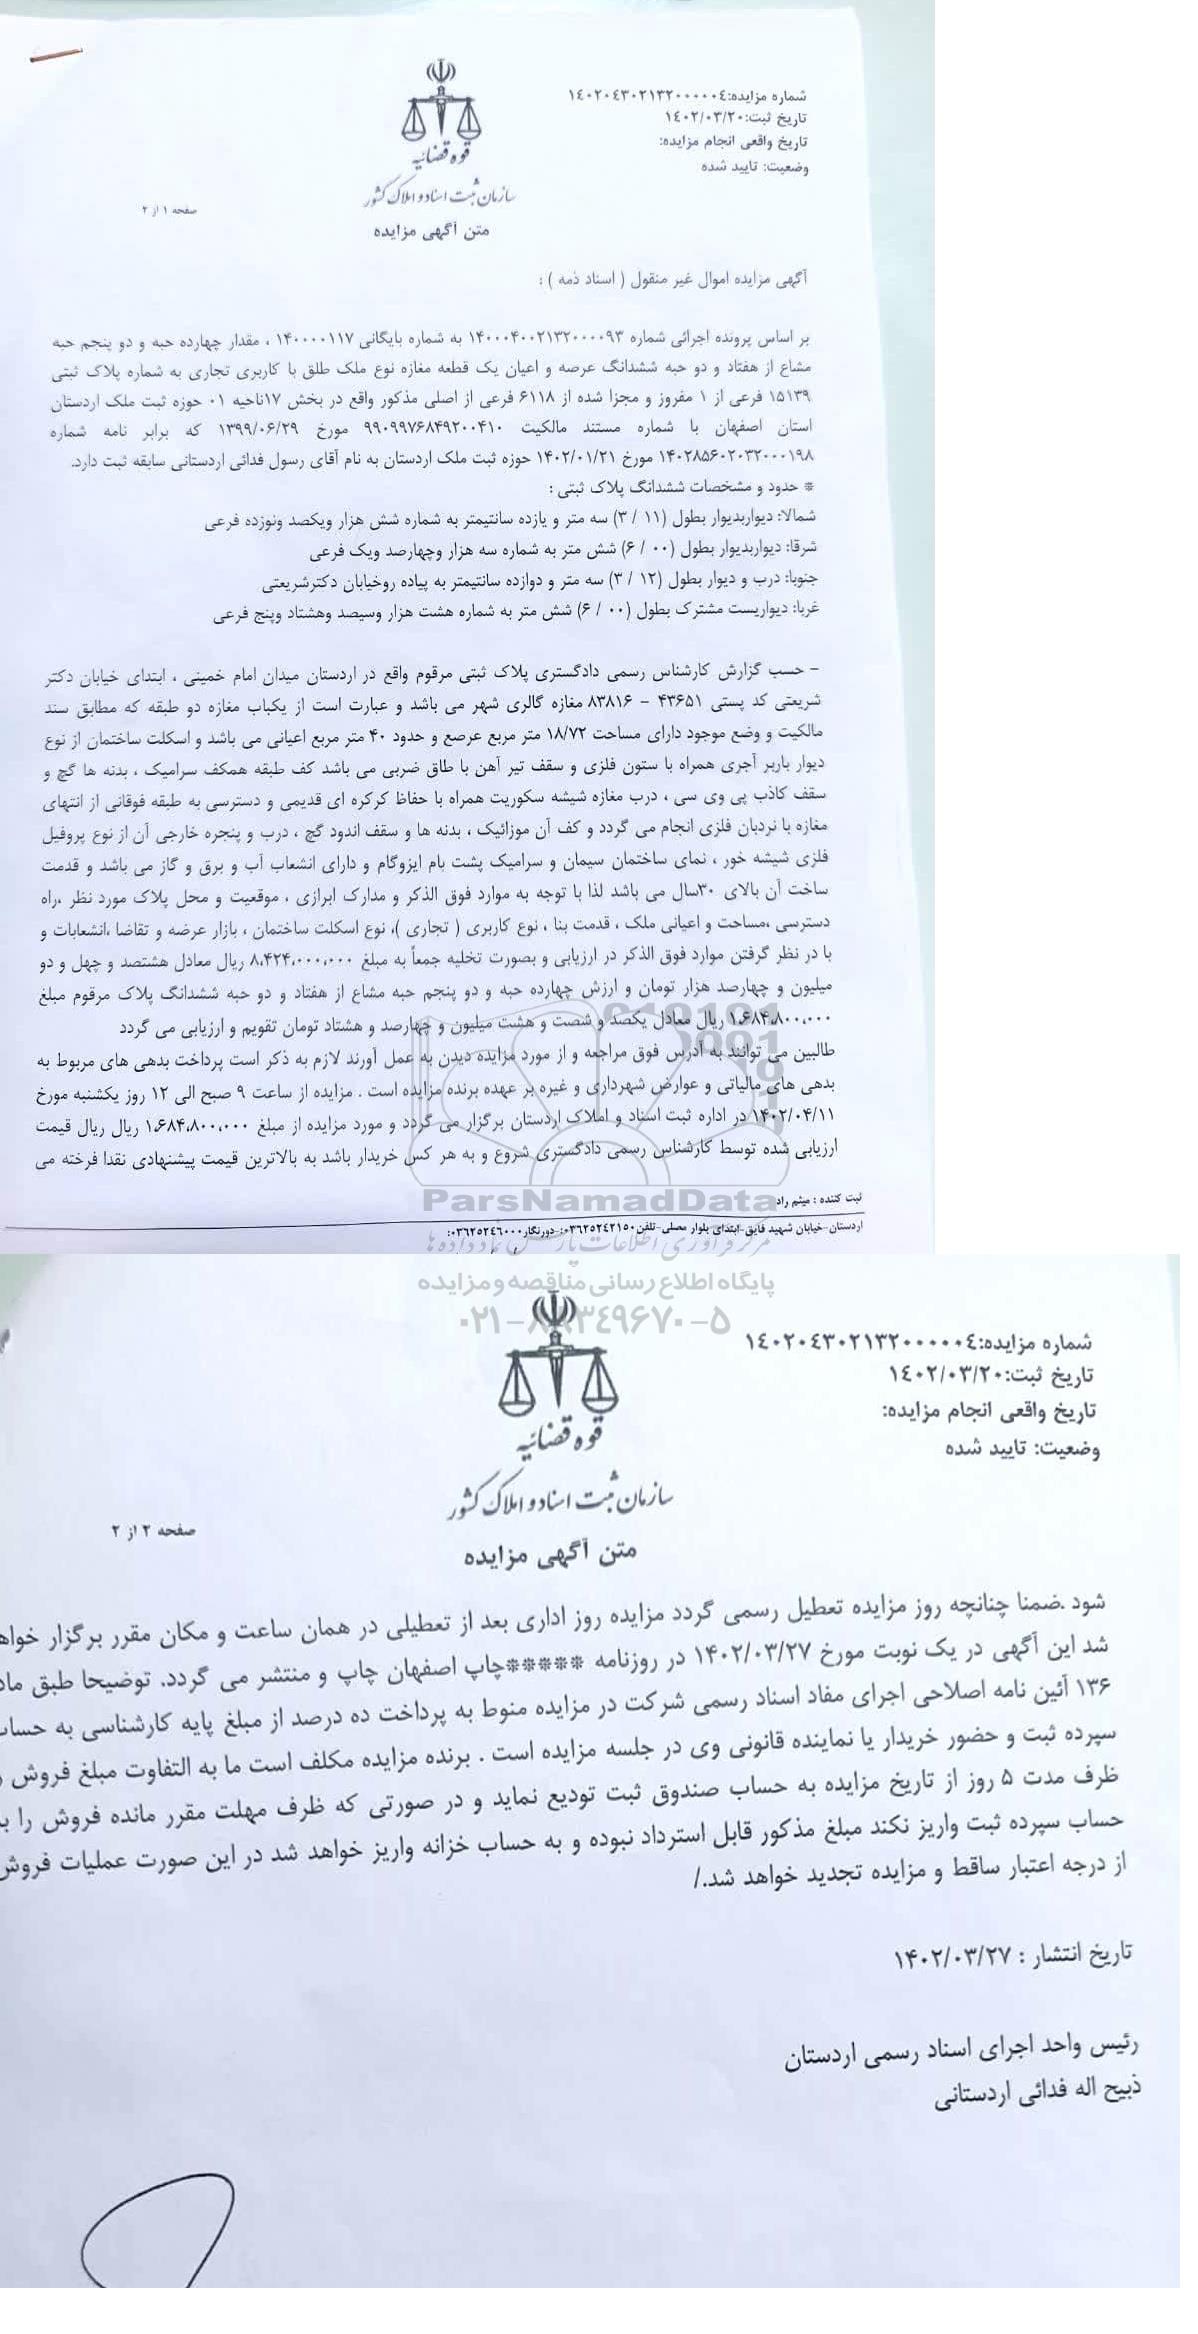 شماره مزایده:۱٤۰۲۰٤۳۰۲۱۳۲۰۰۰۰۰۰٤
تاریخ ثبت:۱٤۰۲/۰۳/۲۰
تاریخ واقعی انجام مزایده:
وضعیت: تایید شده
قوه قضائیه
سازمان ثبت اسناد و املاک کشور
صفحه ۱ از ۲
متن آگهی مزایده
آگهی مزایده اموال غیر منقول ( اسناد ذمه ) :
بر اساس پرونده اجرائی شماره ۱۴۰۰۰۴۰۰۲۱۳۲۰۰۰۰۹۳ به شماره بایگانی ۱۴۰۰۰۰۱۱۷ ، مقدار چهارده حبه و دو پنجم حبه
مشاع از هفتاد و دو حبه ششدانگ عرصه و اعیان یک قطعه مغازه نوع ملک طلق با کاربری تجاری به شماره پلاک ثبتی
۱۵۱۳۹ فرعی از ۱ مفروز و مجزا شده از ۶۱۱۸ فرعی از اصلی مذکور واقع در بخش ۱۷ناحیه ۰۱ حوزه ثبت ملک اردستان
استان اصفهان با شماره مستند مالکیت ۹۹۰۹۹۷۶۸۴۹۲۰۰۴۱۰ مورخ ۱۳۹۹/۰۶/۲۹ که برابر نامه شماره
۱۴۰۲۸۵۶۰۲۰۳۲۰۰۰۱۹۸ مورخ ۱۴۰۲/۰۱/۲۱ حوزه ثبت ملک اردستان به نام آقای رسول فدائی اردستانی سابقه ثبت دارد.
* حدود و مشخصات ششدانگ پلاک ثبتی :
شمالا: دیواربدیوار بطول (۱۱ / ۳) سه متر و یازده سانتیمتر به شماره شش هزار ویکصد ونوزده فرعی
شرقا: دیواربدیوار بطول (۰۰ / ۶) شش متر به شماره سه هزار وچهارصد ویک فرعی
جنوبا: درب و دیوار بطول (۱۲ / ۳) سه متر و دوازده سانتیمتر به پیاده روخیابان دکترشریعتی
غربا: دیواریست مشترک بطول (۰۰ / ۶) شش متر به شماره هشت هزار وسیصد وهشتاد وپنج فرعی
– حسب گزارش کارشناس رسمی دادگستری پلاک ثبتی مرقوم واقع در اردستان میدان امام خمینی ، ابتدای خیابان دکتر
شریعتی کد پستی ۴۳۶۵۱ – ۸۳۸۱۶ مغازه گالری شهر می باشد و عبارت است از یکباب مغازه دو طبقه که مطابق سند
مالکیت و وضع موجود دارای مساحت ۱۸/۷۲ متر مربع عرصع و حدود ۴۰ متر مربع اعیانی می باشد و اسکلت ساختمان از نوع
دیوار باربر آجری همراه با ستون فلزی و سقف تیر آهن با طاق ضربی می باشد کف طبقه همکف سرامیک ، بدنه ها گچ و
سقف کاذب پی وی سی ، درب مغازه شیشه سکوریت همراه با حفاظ کرکره ای قدیمی و دسترسی به طبقه فوقانی از انتهای
مغازه با نردبان فلزی انجام می گردد و کف آن موزائیک ، بدنه ها و سقف اندود گچ ، درب و پنجره خارجی آن از نوع پروفیل
فلزی شیشه خور ، نمای ساختمان سیمان و سرامیک پشت بام ایزوگام و دارای انشعاب آب و برق و گاز می باشد و قدمت
ساخت آن بالای ۳۰سال می باشد لذا با توجه به موارد فوق الذکر و مدارک ابرازی ، موقعیت و محل پلاک مورد نظر ،راه
دسترسی ،مساحت و اعیانی ملک ، قدمت بنا ، نوع کاربری ( تجاری )، نوع اسکلت ساختمان ، بازار عرضه و تقاضا ،انشعابات و
با در نظر گرفتن موارد فوق الذکر در ارزیابی و بصورت تخلیه جمعاً به مبلغ ۸،۴۲۴،۰۰۰،۰۰۰ ریال معادل هشتصد و چهل و دو
میلیون و چهارصد هزار تومان و ارزش چهارده حبه و دو پنجم حبه مشاع از هفتاد و دو حبه ششدانگ پلاک مرقوم مبلغ
۱،۶۸۴،۸۰۰،۰۰۰ ریال معادل یکصد و شصت و هشت میلیون و چهارصد و هشتاد تومان تقویم و ارزیابی می گردد
طالبین می توانند به آدرس فوق مراجعه و از مورد مزایده دیدن به عمل آورند لازم به ذکر است پرداخت بدهی های مربوط به
بدهی های مالیاتی و عوارض شهرداری و غیره بر عهده برنده مزایده است . مزایده از ساعت ۹ صبح الی ۱۲ روز یکشنبه مورخ
۱۴۰۲/۰۴/۱۱ در اداره ثبت اسناد و املاک اردستان برگزار می گردد و مورد مزایده از مبلغ ۱،۶۸۴،۸۰۰،۰۰۰ ریال ریال قیمت
ارزیابی شده توسط کارشناس رسمی دادگستری شروع و به هر کس خریدار باشد به بالاترین قیمت پیشنهادی نقدا فرخته می
ثبت کننده : میثم راد
ParsNamadData
اردستان-خیابان شهید فایق-ابتدای بلوار مصلی-تلفن۰۳٦۲۵۲٤۲۱۵۰:-دورنگار۰۳٦۲۵۲٤٦۰۰۰:
مرکز فرآوری اطلاعات پارس نماد داده ها
پایگاه اطلاع رسانی مناقصه و مزایده
۰۲۱-۸۸۳٤۹۶۷۰-۵
شماره مزایده:۱٤۰۲۰٤۳۰۲۱۳۲۰۰۰۰۰۰٤
تاریخ ثبت:۱٤۰۲/۰۳/۲۰
تاریخ واقعی انجام مزایده:
وضعیت: تایید شده
قوه قضائیه
سازمان ثبت اسناد و املاک کشور
صفحه ۲ از ۲
متن آگهی مزایده
شود .ضمنا چنانچه روز مزایده تعطیل رسمی گردد مزایده روز اداری بعد از تعطیلی در همان ساعت و مکان مقرر برگزار خواه
شد این آگهی در یک نوبت مورخ ۱۴۰۲/۰۳/۲۷ در روزنامه *****چاپ اصفهان چاپ و منتشر می گردد. توضیحا طبق ماد
۱۳۶ آئین نامه اصلاحی اجرای مفاد اسناد رسمی شرکت در مزایده منوط به پرداخت ده درصد از مبلغ پایه کارشناسی به حساب
سپرده ثبت و حضور خریدار یا نماینده قانونی وی در جلسه مزایده است . برنده مزایده مکلف است ما به التفاوت مبلغ فروش
ظرف مدت ۵ روز از تاریخ مزایده به حساب صندوق ثبت تودیع نماید و در صورتی که ظرف مهلت مقرر مانده فروش را ب
حساب سپرده ثبت واریز نکند مبلغ مذکور قابل استرداد نبوده و به حساب خزانه واریز خواهد شد در این صورت عملیات فروش
از درجه اعتبار ساقط و مزایده تجدید خواهد شد./
تاریخ انتشار : ۱۴۰۲/۰۳/۲۷
رئیس واحد اجرای اسناد رسمی اردستان
ذبیح اله فدائی اردستانی